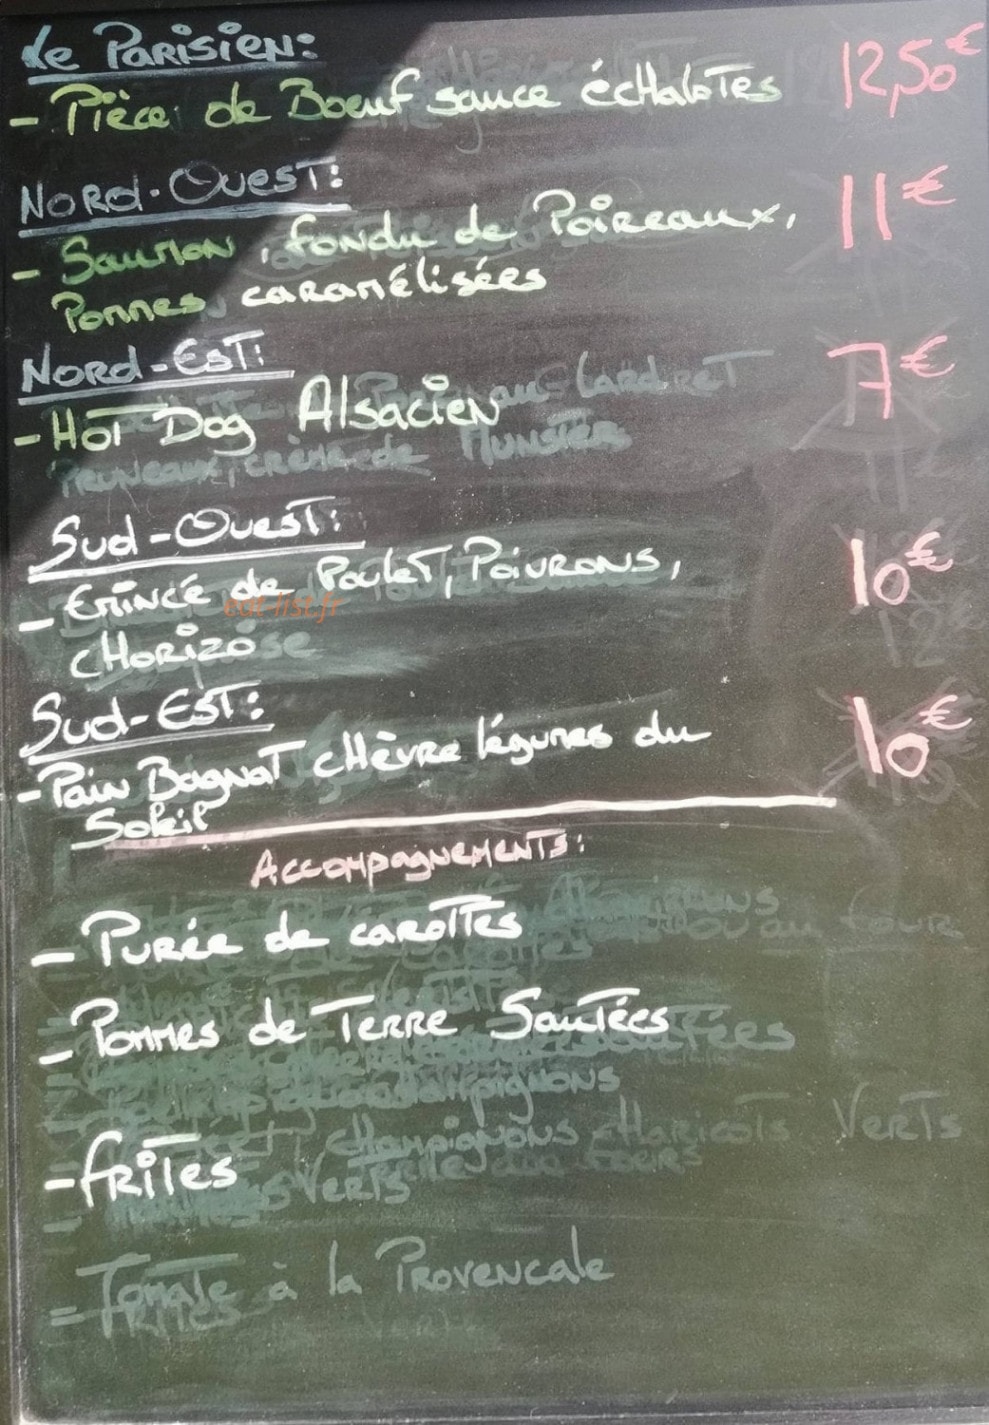 Le Parisien:
- Pièce de Boeuf sauce échalotes 12,50€
Nord-Ouest:
- Saumon, fondu de Poireaux, 11€
Pommes caramélisées
Nord-Est:
- Hot Dog Alsacien 7€
Pruneaux, crème de Munster
Sud-Ouest:
- Emincé de Poulet, Poivrons, 10€
eat-list.fr
chorizo
Sud-Est:
- Pain Bagnat chèvre légumes du 10€
Soleil
Accompagnements:
- Purée de carottes
- Pommes de Terre Sautées
champignons Haricots Verts
- Frites
- Tomate à la Provencale